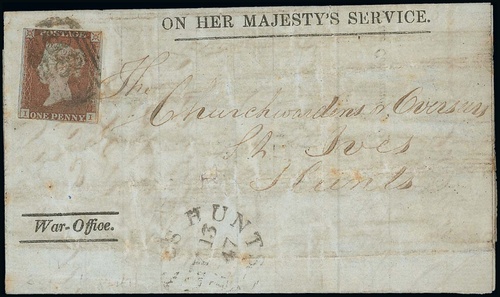 ON HER MAJESTY'S SERVICE.
POSTAGE
I ONE PENNY I
The
Churchwardens & Overseers
St. Ives
Hunts
War-Office.
S HUNTS
13
47